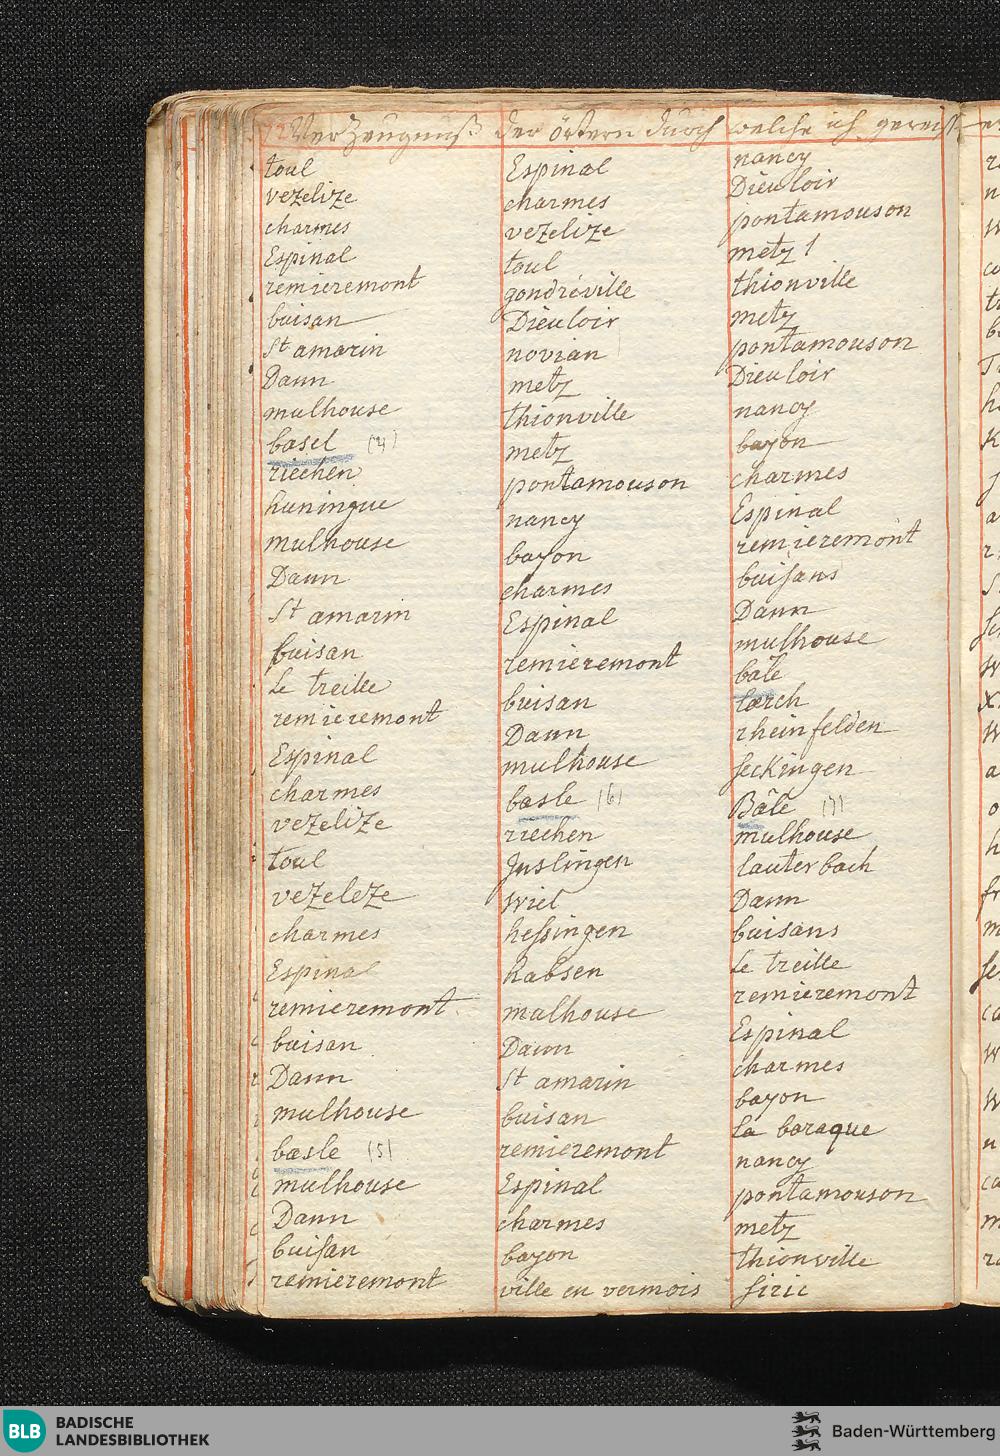 Verzeugnuß der örtern durch welche ich gereist
toul
vezelize
charmes
Espinal
remieremont
buisan
St amarin
Dann
mulhouse
basel (4)
riechen
huningue
mulhouse
Dann
St amarin
buisan
Le treille
remieremont
Espinal
charmes
vezelize
toul
vezeleze
charmes
Espinal
remieremont
buisan
Dann
mulhouse
basle (5)
mulhouse
Dann
buisan
remieremont
Espinal
charmes
vezelize
toul
gondréville
Dieuloir
novian
metz
thionville
metz
pontamouson
nancy
bayon
charmes
Espinal
remieremont
buisan
Dann
mulhouse
basle (6)
riechen
Inslingen
Wiel
hessingen
Kabsen
mulhouse
Dann
St amarin
buisan
remieremont
Espinal
charmes
bayon
ville en vermois
nancy
Dieuloir
pontamouson
metz
thionville
metz
pontamouson
Dieuloir
nancy
bayon
charmes
Espinal
remieremont
buisans
Dann
mulhouse
bâle
lœrch
rheinfelden
seckingen
Bâle (7)
mulhouse
lauterbach
Dann
buisans
Le treille
remieremont
Espinal
charmes
bayon
La baraque
nancy
pontamouson
metz
thionville
siric
BLB
BADISCHE
LANDESBIBLIOTHEK
Baden-Württemberg